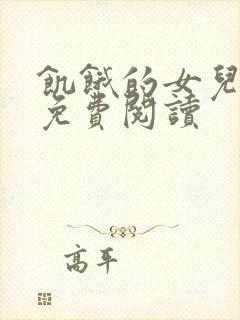 飢餓的女兒
免費閱讀
高平